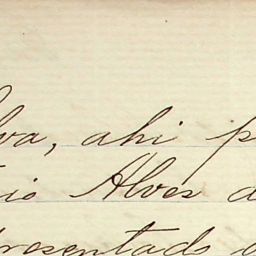 lva, ahi p
io Alves d
presentado